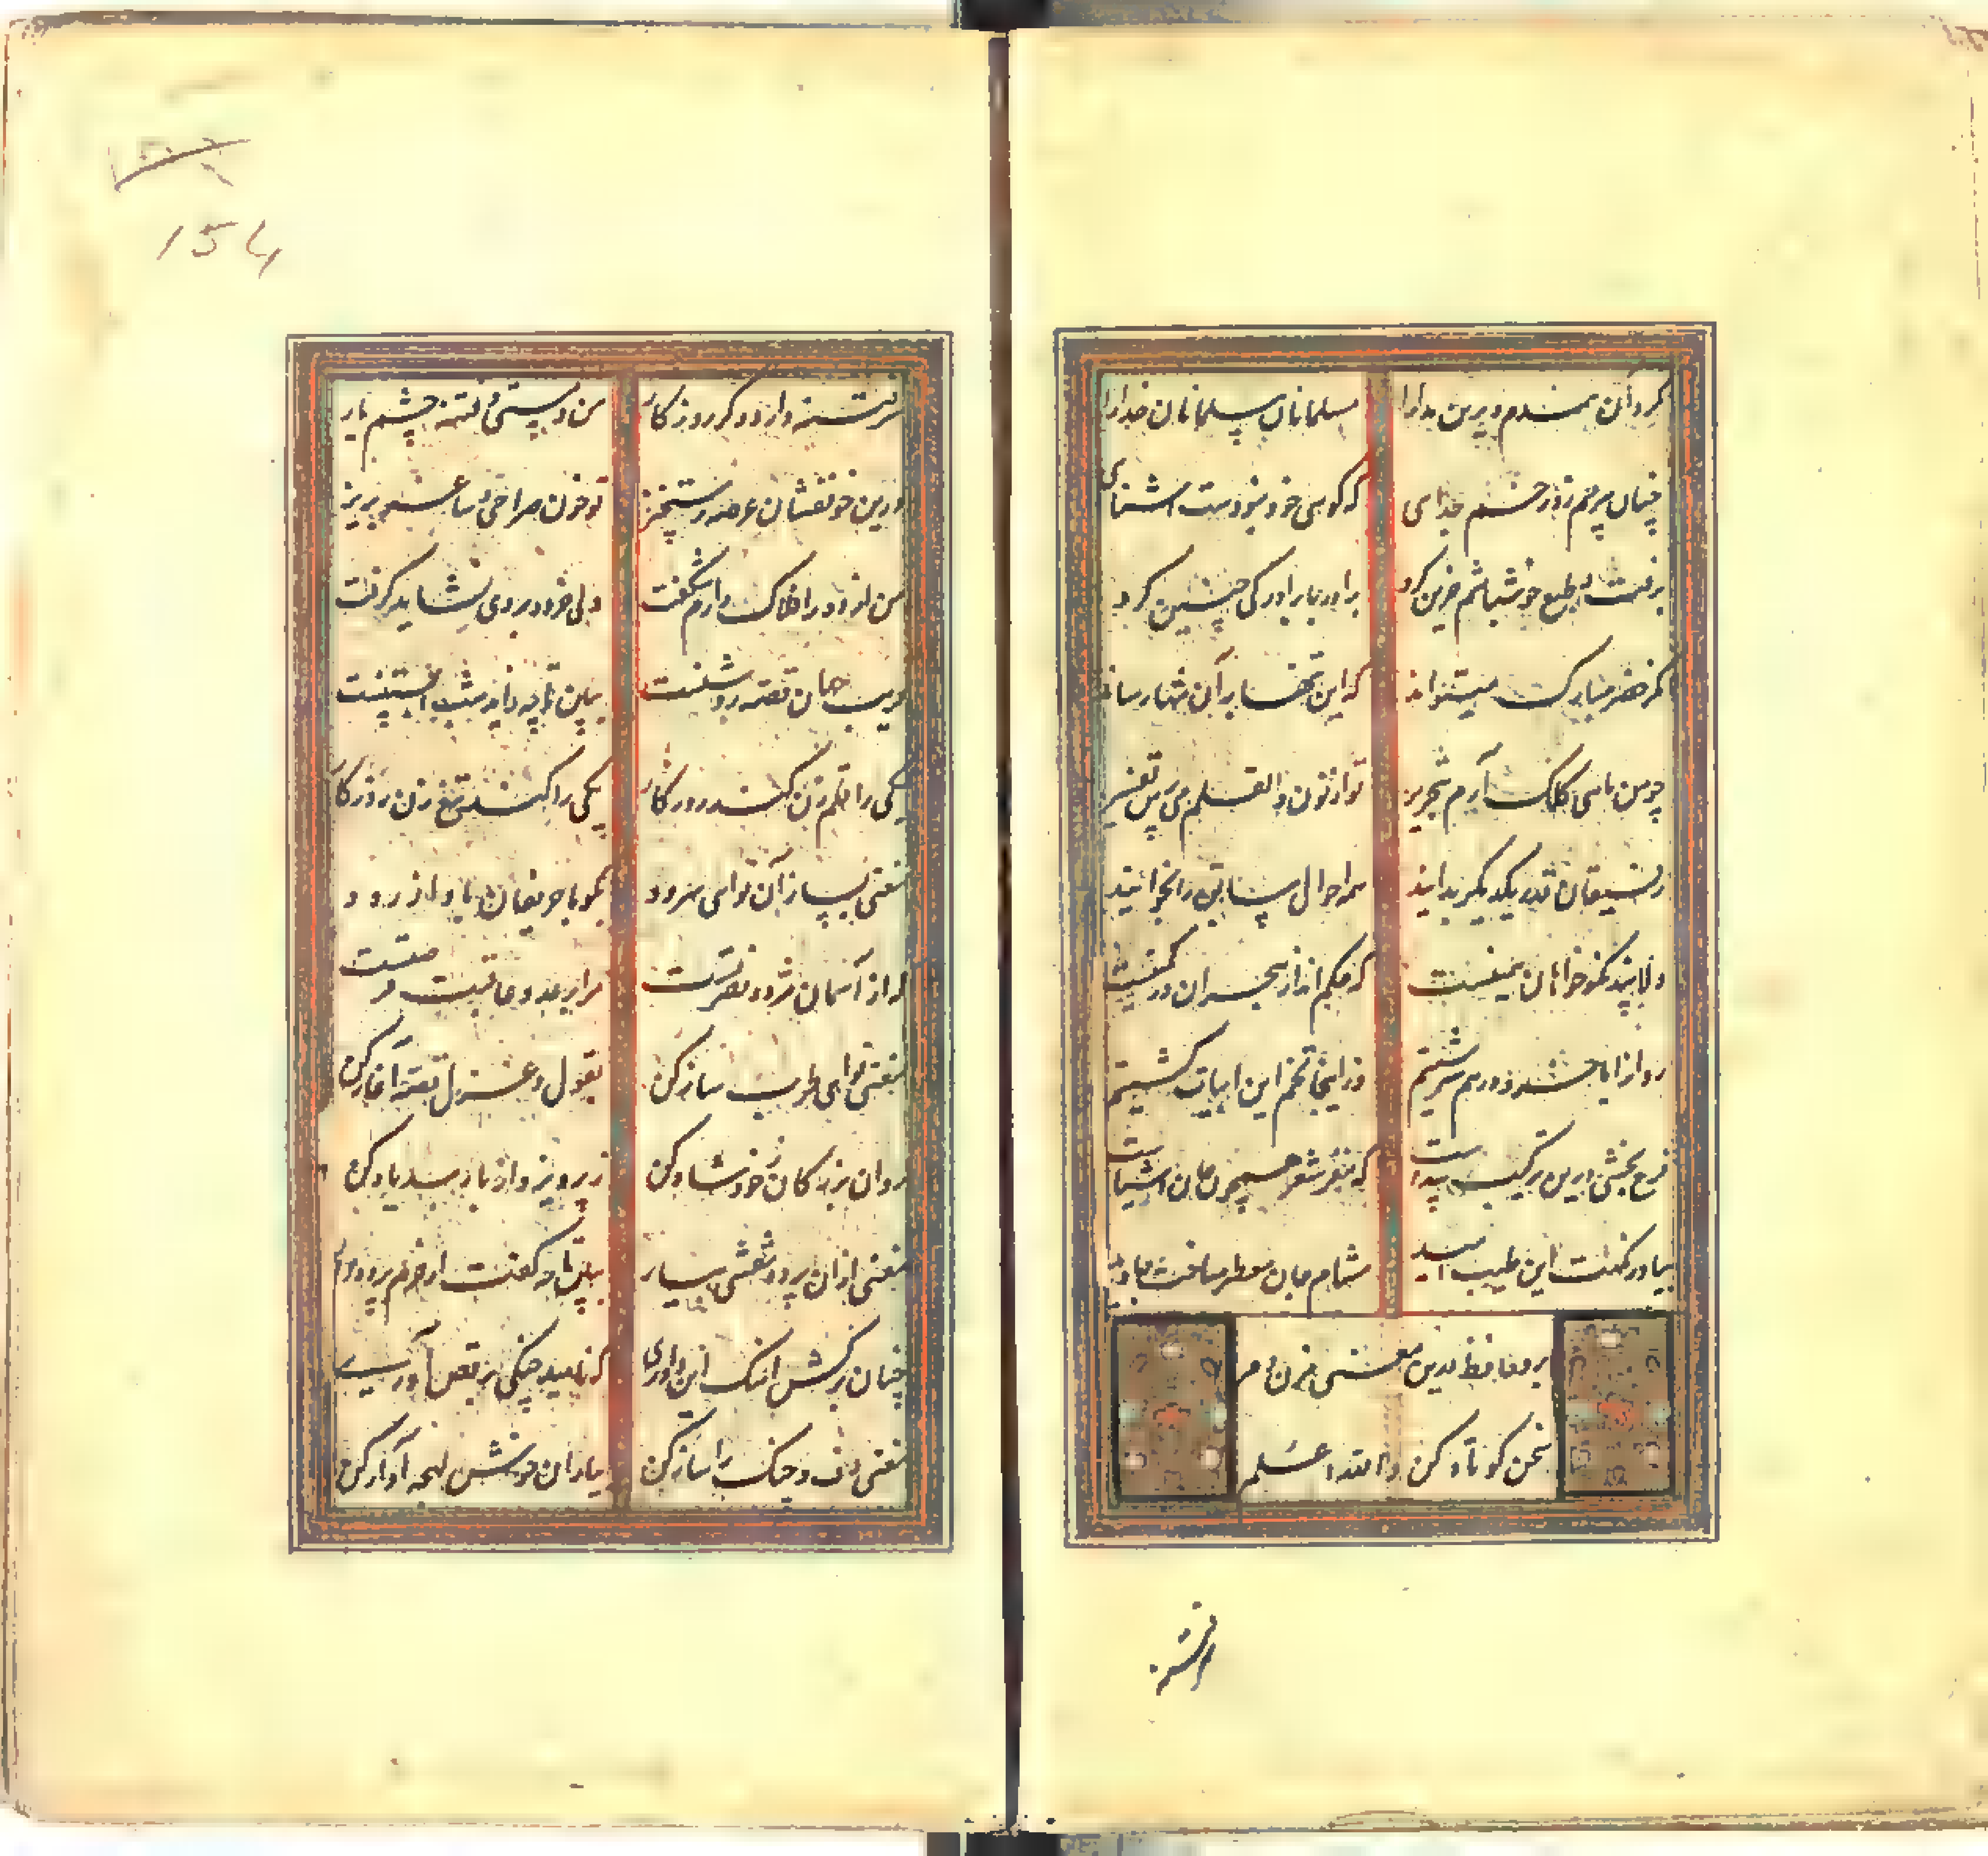 کرد آن همدم دیرین مدارا مسلمانان مسلمانان خدارا
چنان بیرحم زد زخم جدایی که گویی خود نبودست آشنایی
برفت و طبع خوشباشم حزین کرد برادر با برادر کی چنین کرد
مگر خضر مبارک میتواند که این تنها بدان تنها رساند
چو من ماهی کلک آرم بتحریر تو از نون والقلم می پرس تفسیر
رفیقان قدر یکدیگر بدانید همه احوال
که حکم انداز هجران در کمینست
روان را با خرد در هم سرشتم وز اینجا تخم این ابیات کشتم
فرح بخشی درین ترکیب پیداست که مغز شعر همچون جان
بیا در نکهت این طیب امید مشام جان معطر ساخت جاوید
برو حافظ درین معنی مزن دم
سخن کوتاه کن والله اعلم
فریب
فتنه دارد دگر روزگار من و مستی و فتنه چشم یار
درین خونفشان عرصه رستخیز تو خون صراحی و ساغر بریز
من از دور افلاک دارم شگفت ولی خرده بر وی نشاید گرفت
فریب جهان قصه روشنست ببین تا چه زاید شب آبستنست
یکی را قلم زن کند روزگار یکی را کند تیغ زن روزگار
مغنی بساز آن نوای سرود بگو با حریفان باواز رود
که از آسمان مژده نصرتست مرا بر عدو عاقبت فرصتست
مغنی نوای طرب ساز کن بقول و غزل قصه آغاز کن
روان بزرگان ز خود شاد کن ز پرویز و از باربد یاد کن
مغنی از آن پرده نقشی بیار ببین تا چه گفت از حرم پرده دار
چنان برکش آهنگ این داوری که ناهید چنگی برقص آوری
مغنی دف و چنگ را ساز کن بیاران خوش لهجه آواز کن
154